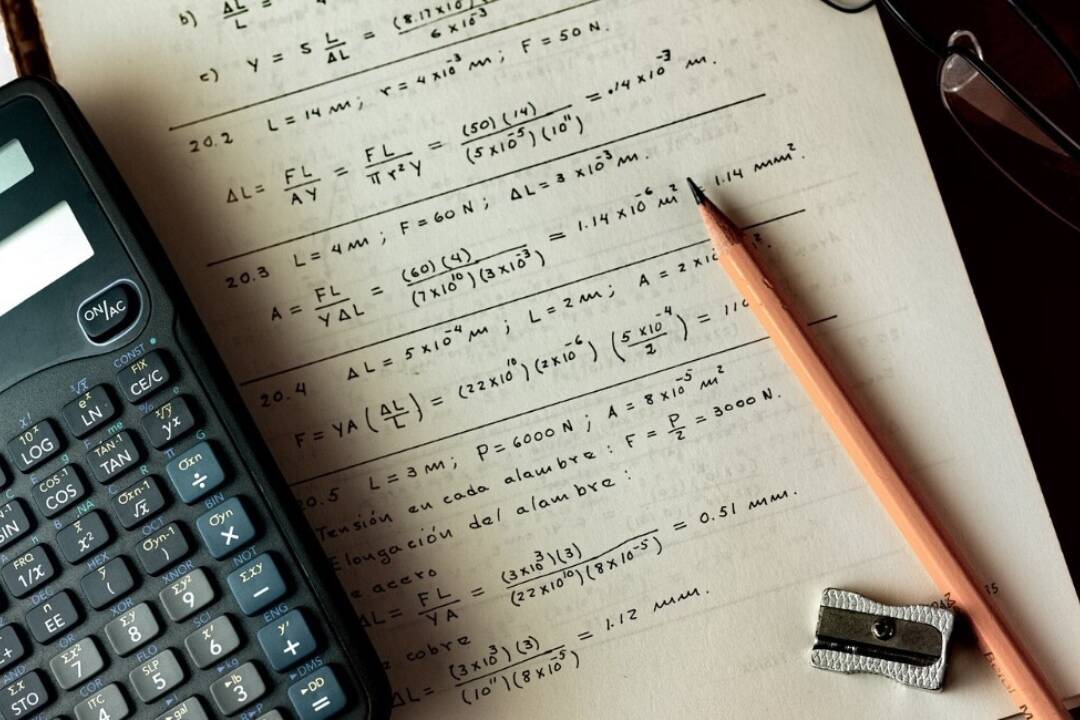 b) ΔL/L =
c) Y = 5 L/ΔL = (8.17×10 / 6×10⁻³
20.2 L = 14 m; r = 4×10⁻³ m; F = 50 N.
ΔL = FL/AY = FL/πr²Y = (50)(14)/(5×10⁻⁵)(10¹¹) = .14×10⁻³ m.
20.3 L = 4 m; F = 60 N; ΔL = 3×10⁻³ m.
A = FL/YΔL = (60)(4)/(7×10¹⁰)(3×10⁻³) = 1.14×10⁻⁶ m² = 1.14 mm².
20.4 ΔL = 5×10⁻⁴ m; L = 2 m; A = 2×10
F = YA(ΔL/L) = (22×10¹⁰)(2×10⁻⁶)(5×10⁻⁴/2) = 110
20.5 L = 3 m; P = 6000 N; A = 8×10⁻⁵ m²
Tensión en cada alambre: F = P/2 = 3000 N.
Elongación del alambre:
e acero
ΔL = FL/YA = (3×10³)(3)/(22×10¹⁰)(8×10⁻⁵) = 0.51 mm.
cobre
ΔL = (3×10³)(3)/(10¹¹)(8×10⁵) = 1.12 mm.
ON/AC
CONST
FIX
CE/C
³√x
eˣ
LN
ˣ√y
yx
x!
10ˣ
LOG
me
TAN-1
TAN
G
σxn
÷
COS-1
COS
R
σxn-1
√x
BIN
σyn
×
NA
x̄
x²
OCT
σyn-1
)
NOT
Σxy
−
FRQ
1/x
HEX
ȳ
(
XNOR
Σy²
9
ENG
y'
+
DEC
n
EE
XOR
Σy
8
x'
6
DMS
DD
=
OR
Σx²
7
SLP
5
kg
lb
3
AND
Σx
STO
COR
ITC
4
gal